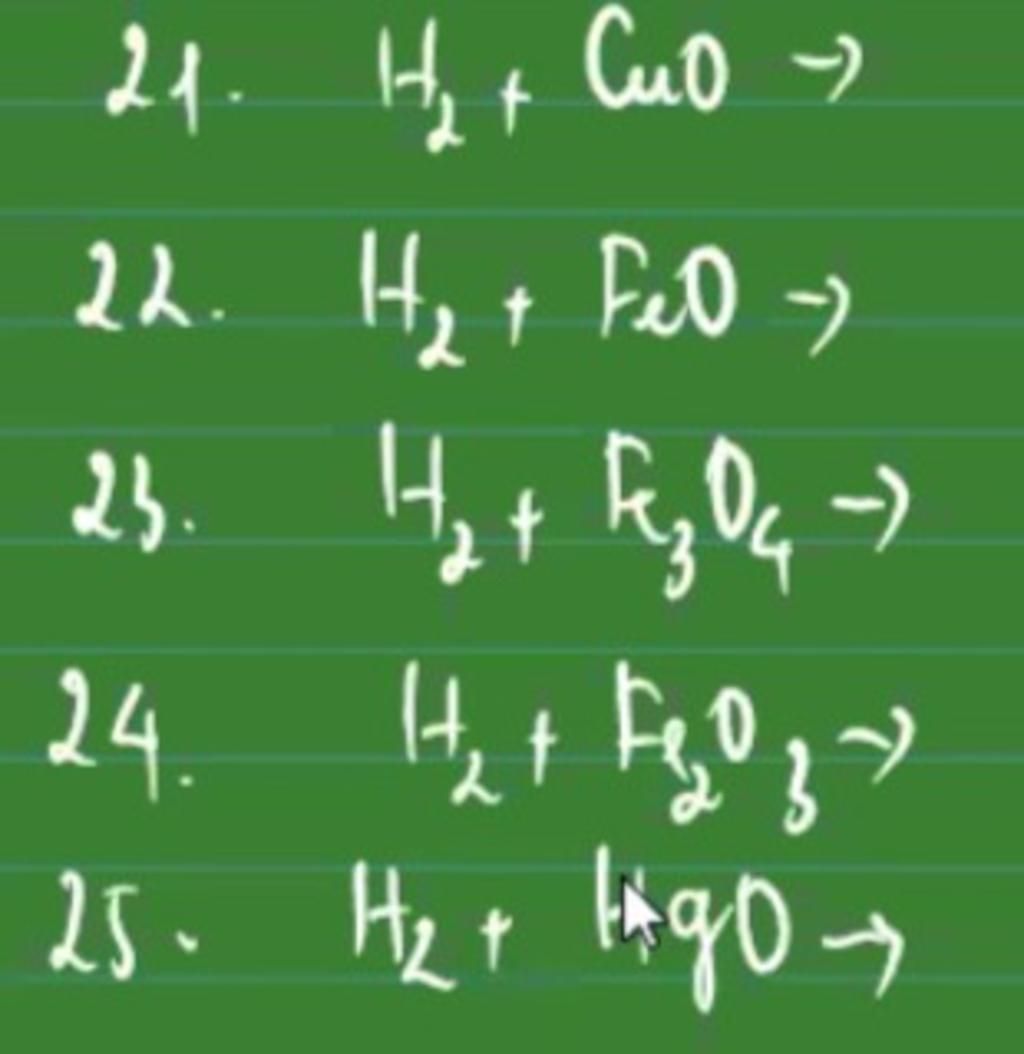 21. H₂ + CuO →
22. H₂ + FeO →
23. H₂ + Fe₃O₄ →
24. H₂ + Fe₂O₃ →
25. H₂ + HgO →